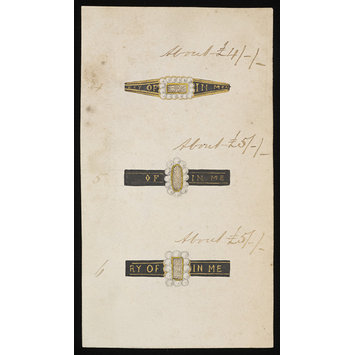 About £4/-/-
4
RY OF IN ME
About £5/-/-
5
OF IN ME
About £5/-/-
6
RY OF IN ME